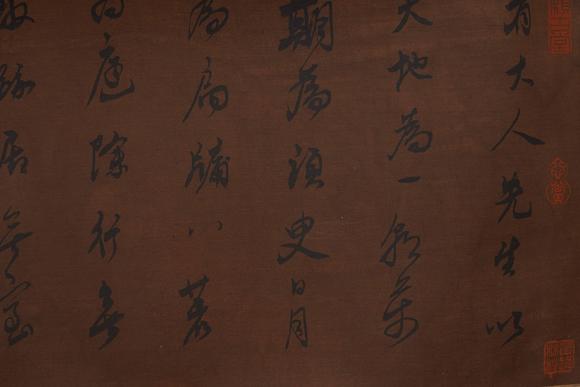 有大人先生以
天地為一朝萬
期為須臾日月
為扃牖八荒
為庭除行無
居無室